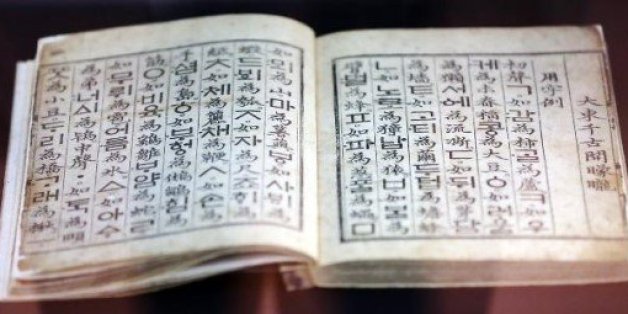 大東千古開矇矓
用字例
初聲ㄱ如감為柿ᄀᆞᆯ為蘆ㅋ如우
케為未舂稻콩為大豆ㆁ如러울
為獺서에為流凘ㄷ如뒤為茅담
為墻ㅌ如고티為繭두텁為蟾蜍
ㄴ如노로為獐납為猿ㅂ如ᄇᆞᆯ為
臂벌為蜂ㅍ如파為葱ᄑᆞᆯ為蠅ㅁ
如뫼為山마為薯藇ㅸ如사ᄫᅵ為
蝦드ᄫᅴ為瓠ㅈ如자為尺죠ᄒᆡ為
紙ㅊ如체為籭채為鞭ㅅ如손為
手셤為島ㅎ如부헝為鵂鶹힘為
筋ㅇ如비육為鷄雛ᄇᆞ얌為蛇ㄹ
如무뤼為雹어름為氷ㅿ如아ᅀᆞ
為弟너ᅀᅵ為鴇中聲ㆍ如ᄐᆞᆨ為頤
ᄑᆞᆺ為小豆ᄃᆞ리為橋ᄀᆞ래為楸